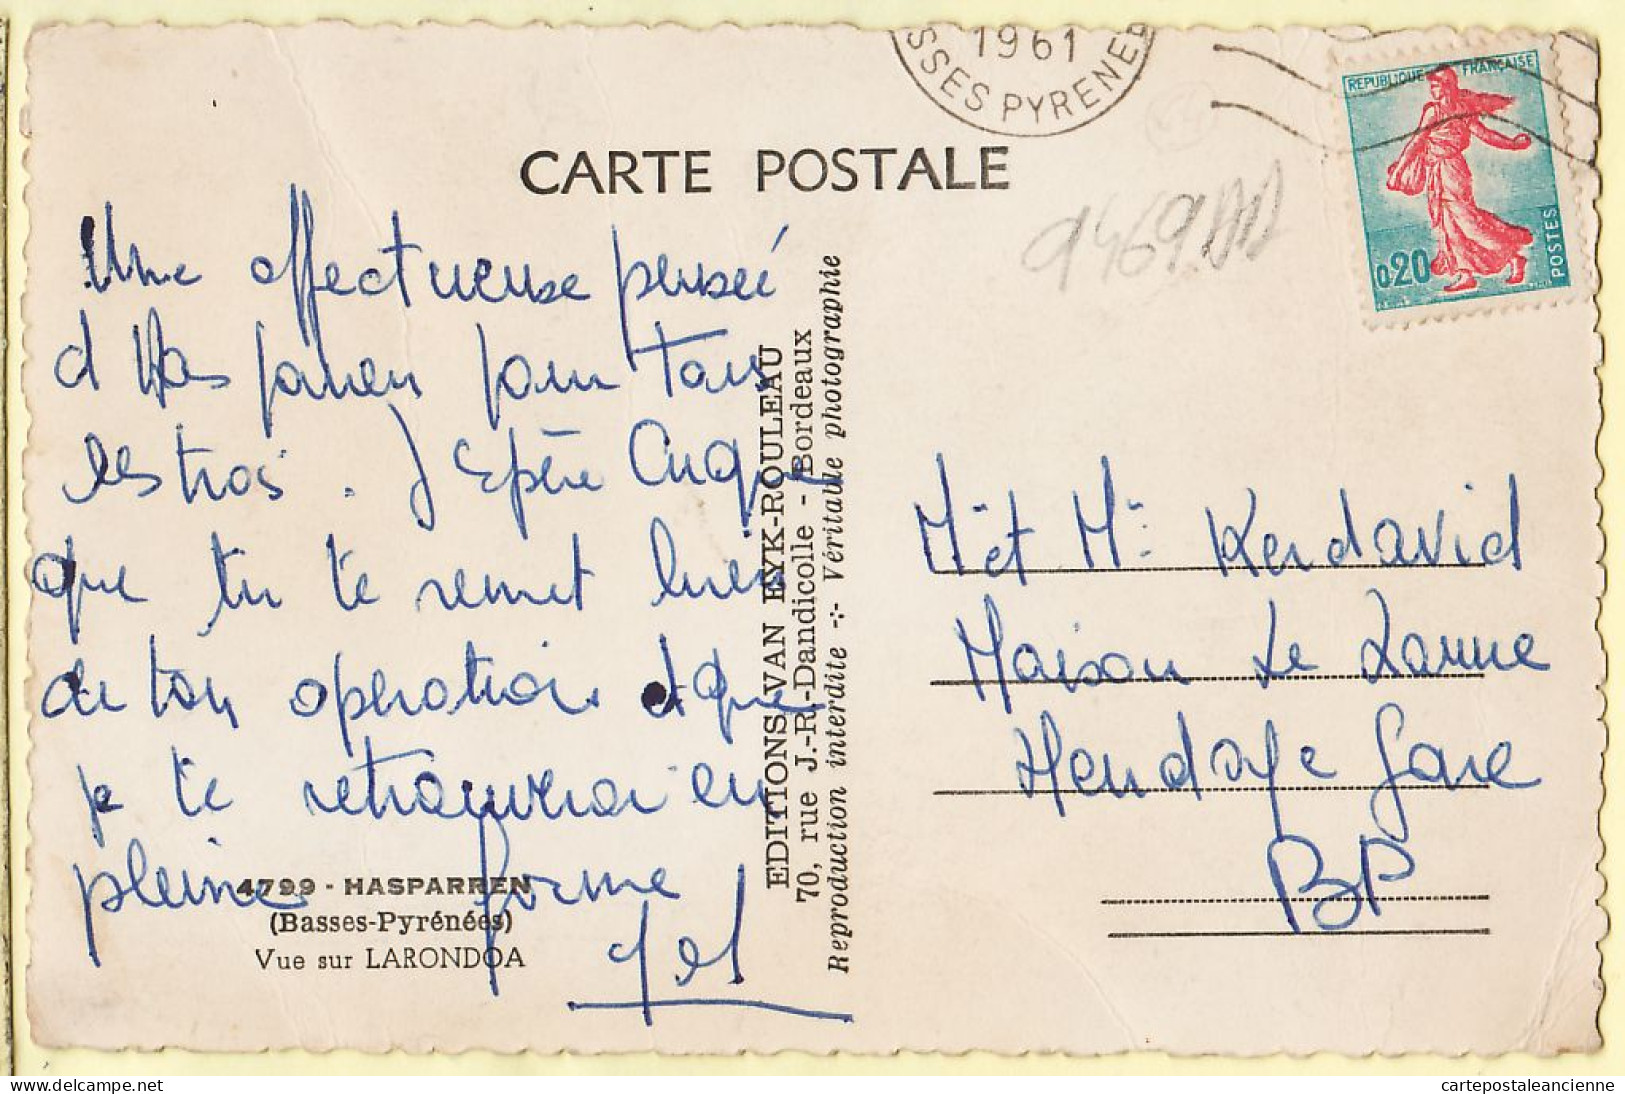 1961
SSES PYRENEE
REPUBLIQUE FRANÇAISE
0,20
POSTES
CARTE POSTALE
9469
Une affectueuse pensée
d Hasparren pour tous
les trois. J Espère
que tu te remet bien
de ton opération et que
je te retrouverai en
pleine forme
4799 - HASPARREN
(Basses-Pyrénées)
Vue sur LARONDOA
EDITIONS VAN EYK-ROULEAU
70, rue J.-R.-Dandicolle - Bordeaux
Reproduction interdite -:- Véritable photographie
Mr et Me Kerdavid
Maison Le
Hendaye Gare
BP
cartepostaleancienne